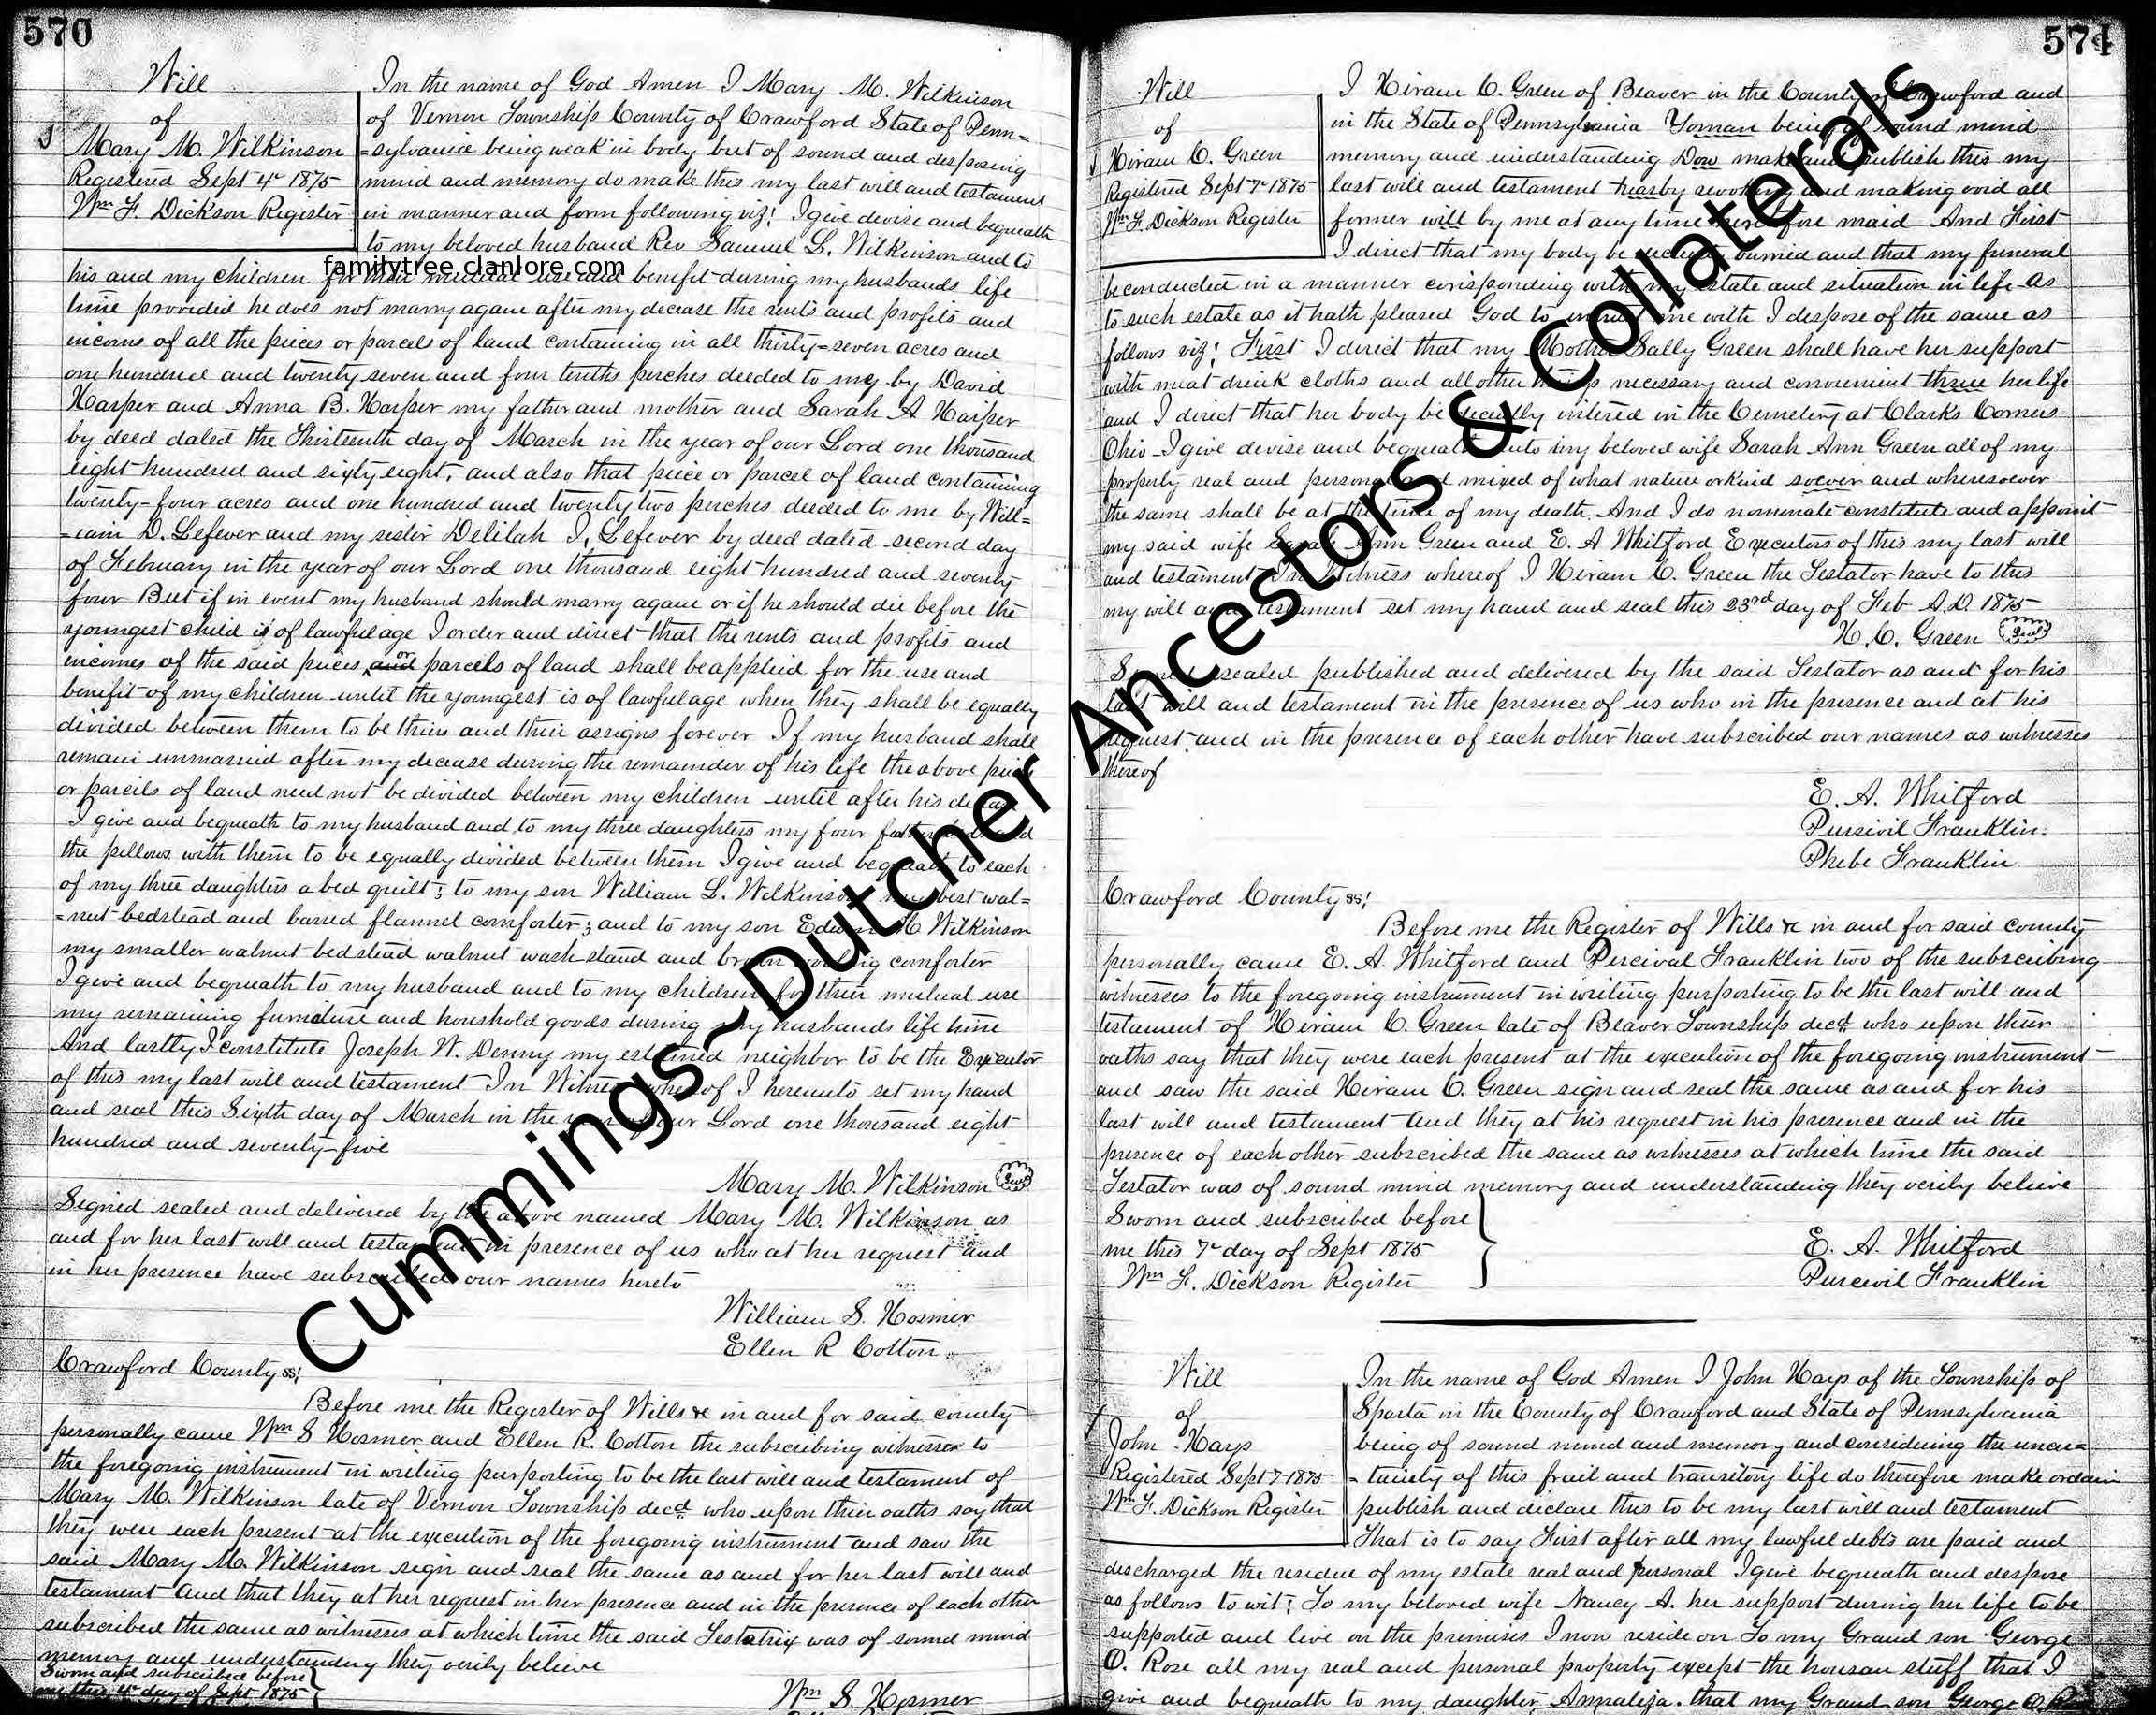 570
Will
of
Mary M. Wilkinson
Registered Sept 4" 1875
Wm F. Dickson Register
In the name of God Amen I Mary M. Wilkinson
of Vernon Township County of Crawford State of Penn=
=sylvania being weak in body but of sound and desposing
mind and memory do make this my last will and testament
in manner and form following viz! I give devise and bequeath
to my beloved husband Rev Samuel L. Wilkinson and to
his and my children for their mutual use and benefit during my husbands life
time provided he does not marry again after my decease the rents and profits and
incoms of all the pieces or parcels of land containing in all thirty=seven acres and
one hundred and twenty seven and four tenths perches deeded to me by David
Harper and Anna B. Harper my father and mother and Sarah A Harper
by deed dated the Thirteenth day of March in the year of our Lord one thousand
eight hundred and sixty eight, and also that piece or parcel of land containing
twenty-four acres and one hundred and twenty two perches deeded to me by Will=
=iam D. Lefever and my sister Delilah I. Lefever by deed dated second day
of February in the year of our Lord one thousand eight hundred and seventy
four But if in event my husband should marry again or if he should die before the
youngest child is of lawful age I order and direct that the rents and profits and
incomes of the said pieces and or parcels of land shall be applied for the use and
benifit of my children until the youngest is of lawful age when they shall be equally
divided between them to be theirs and their assigns forever If my husband shall
remain unmarried after my decease during the remainder of his life the above pieces
or parcels of land need not be divided between my children until after his decease
I give and bequeath to my husband and to my three daughters my four feather beds and
the pillows with them to be equally divided between them I give and bequeath to each
of my three daughters a bed quilt; to my son William L. Wilkinson my best wal=
=nut bedstead and barred flannel comforter; and to my son Edwin H Wilkinson
my smaller walnut bedstead walnut wash stand and comforter
I give and bequeath to my husband and to my children for their mutual use
my remaining furniture and houshold goods during my husbands life time
And lastly I constitute Joseph W. Denny my esteemed neighbor to be the Executor
of this my last will and testament In Witness whereof I hereunto set my hand
and seal this Sixth day of March in the year of our Lord one thousand eight
hundred and seventy-five
Mary M. Wilkinson Seal
Signed sealed and delivered by the above named Mary M. Wilkinson as
and for her last will and testament in presence of us who at her request and
in her presence have subscribed our names hereto
William S. Hosmer
Ellen R Cotton
Crawford County ss!
Before me the Register of Wills &c in and for said county
personally came Wm S Hosmer and Ellen R. Cotton the subscribing witnesses to
the foregoing instrument in writing purporting to be the last will and testament of
Mary M. Wilkinson late of Vernon Township decd who upon their oaths say that
they were each present at the execution of the foregoing instrument and saw the
said Mary M. Wilkinson sign and seal the same as and for her last will and
testament And that they at her request in her presence and in the presence of each other
subscribed the same as witnesses at which time the said Testatrix was of sound mind
memory and understanding they verily believe
Sworn and subscribed before
me this 4" day of Sept 1875
Wm S. Hosmer
571
Will
of
Hiram C. Green
Registered Sept 7" 1875
Wm F. Dickson Register
I Hiram C. Green of Beaver in the County of Crawford and
in the State of Pennsylvania Yoman being of sound mind
memory and understanding Dow make and publish this my
last will and testament hearby revoking and making void all
former will by me at any time heretofore maid And First
I direct that my body be decently burried and that my funeral
be conducted in a manner corisponding with my estate and situation in life As
to such estate as it hath pleased God to intrust me with I dispose of the same as
follows viz! First I direct that my Mother Sally Green shall have her support
with meat drink cloths and all other things necessary and convenient threw her life
and I direct that her body be decently intered in the Cemetery at Clarks Corners
Ohio - I give devise and bequeath unto my beloved wife Sarah Ann Green all of my
property real and personal and mixed of what nature or kind soever and wheresoever
the same shall be at the time of my death. And I do nominate constitute and appoint
my said wife Sarah Ann Green and E. A Whitford Executors of this my last will
and testament In Witness whereof I Hiram C. Green the Testator have to this
my will and testament set my hand and seal this 23rd day of Feb A.D. 1875
H. C. Green Seal
Signed sealed published and delivered by the said Testator as and for his
last will and testament in the presence of us who in the presence and at his
request and in the presence of each other have subscribed our names as witnesses
thereof
E. A. Whitford
Purcivil Franklin
Phebe Franklin
Crawford County ss!
Before me the Register of Wills &c in and for said county
personally came E. A. Whitford and Percival Franklin two of the subscribing
witnesses to the foregoing instrument in writing purporting to be the last will and
testament of Hiram C. Green late of Beaver Township decd who upon their
oaths say that they were each present at the execution of the foregoing instrument
and saw the said Hiram C. Green sign and seal the same as and for his
last will and testament And they at his request in his presence and in the
presence of each other subscribed the same as witnesses at which time the said
Testator was of sound mind memory and understanding they verily believe
Sworn and subscribed before
me this 7" day of Sept 1875
Wm F. Dickson Register
E. A. Whitford
Purcivil Franklin
Will
of
John Hays
Registered Sept 7 1875
Wm F. Dickson Register
In the name of God Amen I John Hays of the Township of
Sparta in the County of Crawford and State of Pennsylvania
being of sound mind and memory and considering the uncer=
=tainty of this frail and transitory life do therefore make ordain
publish and declare this to be my last will and testament
That is to say First after all my lawful debts are paid and
discharged the residue of my estate real and personal I give bequeath and despose
as follows to wit: To my beloved wife Nancy A. her support during her life to be
supported and live on the premises I now reside on To my Grand son George
O. Rose all my real and personal property except the housan stuff that I
give and bequeath to my daughter Annaliza. that my Grand son George O.
familytree.clanlore.com
Cummings~Dutcher Ancestors & Collaterals